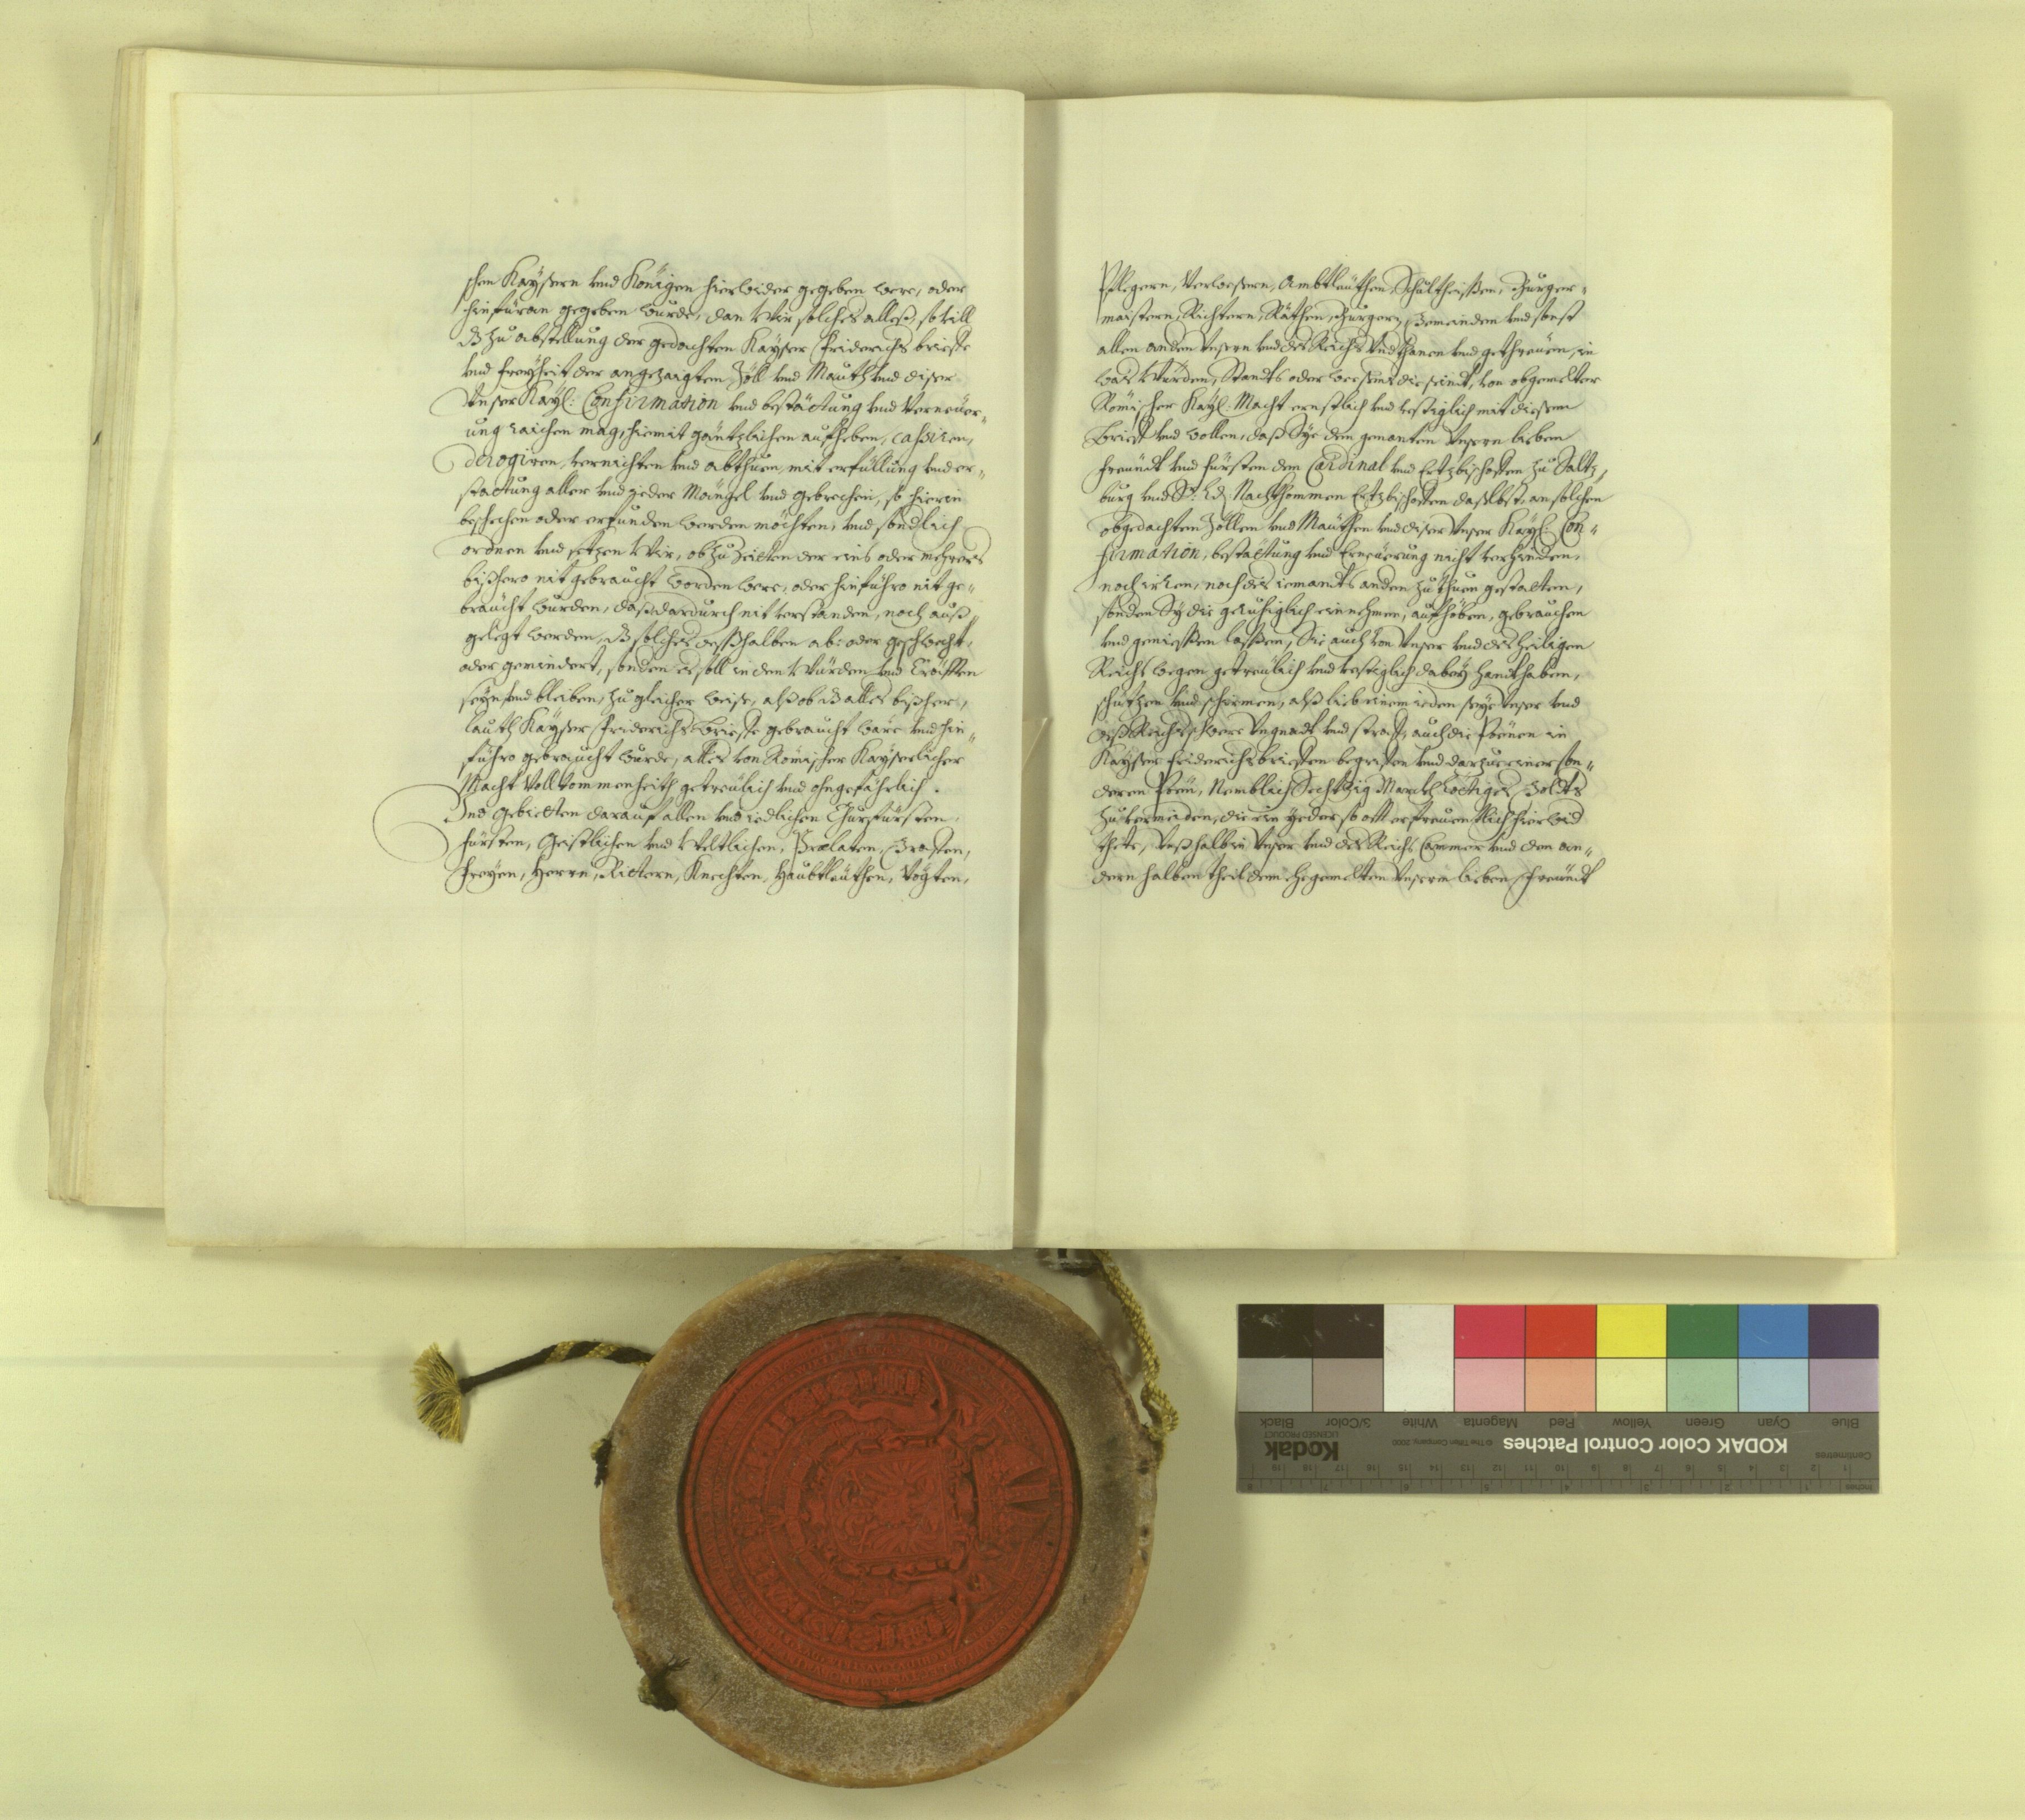 schen Kaÿsern vnd Königen hierwider gegeben were, oder
hinfüran gegeben wurde, dan Wir solches alles, so vill
Zu abstellung der gedachten Kaÿser Friderichs brieffe
vnd freyheit der angezaigten Zöll vnd Mauth vnd diser
Vnser Kaÿl: Confirmation vnd bestättung vnd Verneüer-
ung raichen mag, hiemit gäntzlichen aufheben, cassiren,
derogiren, vernichten vnd abthuen, mit erfüllung vnd er-
stattung aller vnd jeder Mängel vnd gebrechen, so hierin
beschehen oder erfunden werden möchten, vnd sondlich
ordnen vnd setzen Wir, ob zu Zeitten der eins oder mehrers
bißhero nit gebraucht worden were, oder hinführo nit ge-
braucht wurden, daß dardurch nit verstanden, noch auß-
gelegt werden, solches deßhalben ab: oder geschwecht,
oder gemindert, sonder es soll in den Würden vnd Cräfften
seÿn vnd bleiben, zu gleicher weise, alß ob alles bißher,
lauth Kaÿser Friderichs brieffe gebraucht wäre vnd hin-
führo gebraucht wurde, alles von Römischer Kaÿserlicher
Macht Vollkommenheith getreülich vnd ohngefährlich.
Vnd gebietten darauf allen vnd iedlichen Churfürsten,
Fürsten, Geistlichen vnd Weltlichen, Prælaten, Graffen,
Freÿen, Herrn, Rittern, Knechten, Haubtleüthen, Vögten,
Pflegern, Verwesern, Ambtleüthen, Schultheißen, Burger-
maistern, Richtern, Räthen, Burgern, Gemeinden vnd sonst
allen andern Vnsern vnd des Reichs Vndthanen vnd getreüen, in
was Würden, Standts oder weesens die seindt, von obgemelter
Römischer Kaÿl: Macht ernstlich vnd vestiglich mit diesem
Brieff vnd wollen, daß Sÿe dem genanten Vnsern lieben
Freündt vnd Fürsten dem Cardinal vnd Ertzbischoffen zu Saltz-
burg vnd Sr. Ld. Nachkommen Ertzbischoffen daselbst, an solchen
obgedachten Zöllen vnd Mauthen vnd diser Vnser Kaÿl: Con-
firmation, bestättung vnd Erneüerung nicht verhindern,
noch irren, noch des iemandts andern zu thuen gestatten,
sondern Sÿ die geruhiglich einnehmen, aufheben, gebrauchen
vnd geniessen lassen, Sie auch von Vnser vnd des Heiligen
Reichs wegen getreülich vnd vestiglich dabeÿ handthaben,
schützen vnd schirmen, alß lieb einem ieden seÿe Vnser vnd
deß Reichs schwere Vngnadt vnd straff, auch die Pöenen in
Kaÿser Friderichs brieffen begriffen vnd darzue einer son-
deren Pöen, Nemblich Sechtzig Marckh löttiges Goldts
zu vermeiden, die ein yeder so offt er freuentlich hierwid
thete, Vnß halb in Vnser vnd des Reichs Cammer vnd den an-
dern halben theil dem ehegemelten Vnserm lieben Freündt
KODAK Color Control Patches
Kodak
LICENSED PRODUCT
© The Tiffen Company, 2000
Blue Cyan Green Yellow Red Magenta White 3/Color Black
Centimetres
Inches